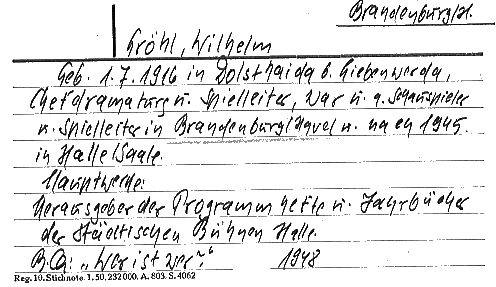 Brandenburg/H.
Gröhl, Wilhelm
Geb. 1.7.1916 in Dolsthaida b. Liebenwerda,
Chefdramaturg u. Spielleiter, war u. a. Schauspieler
u. Spielleiter in Brandenburg/Havel u. nach 1945
in Halle/Saale.
Hauptwerke:
Herausgeber der Programmhefte u. Jahrbücher
der Städtischen Bühnen Halle.
B.Qu: „Wer ist wer?" 1948
Reg. 10. Stichnote. 1. 50. 232 000. A. 803. S. 4062